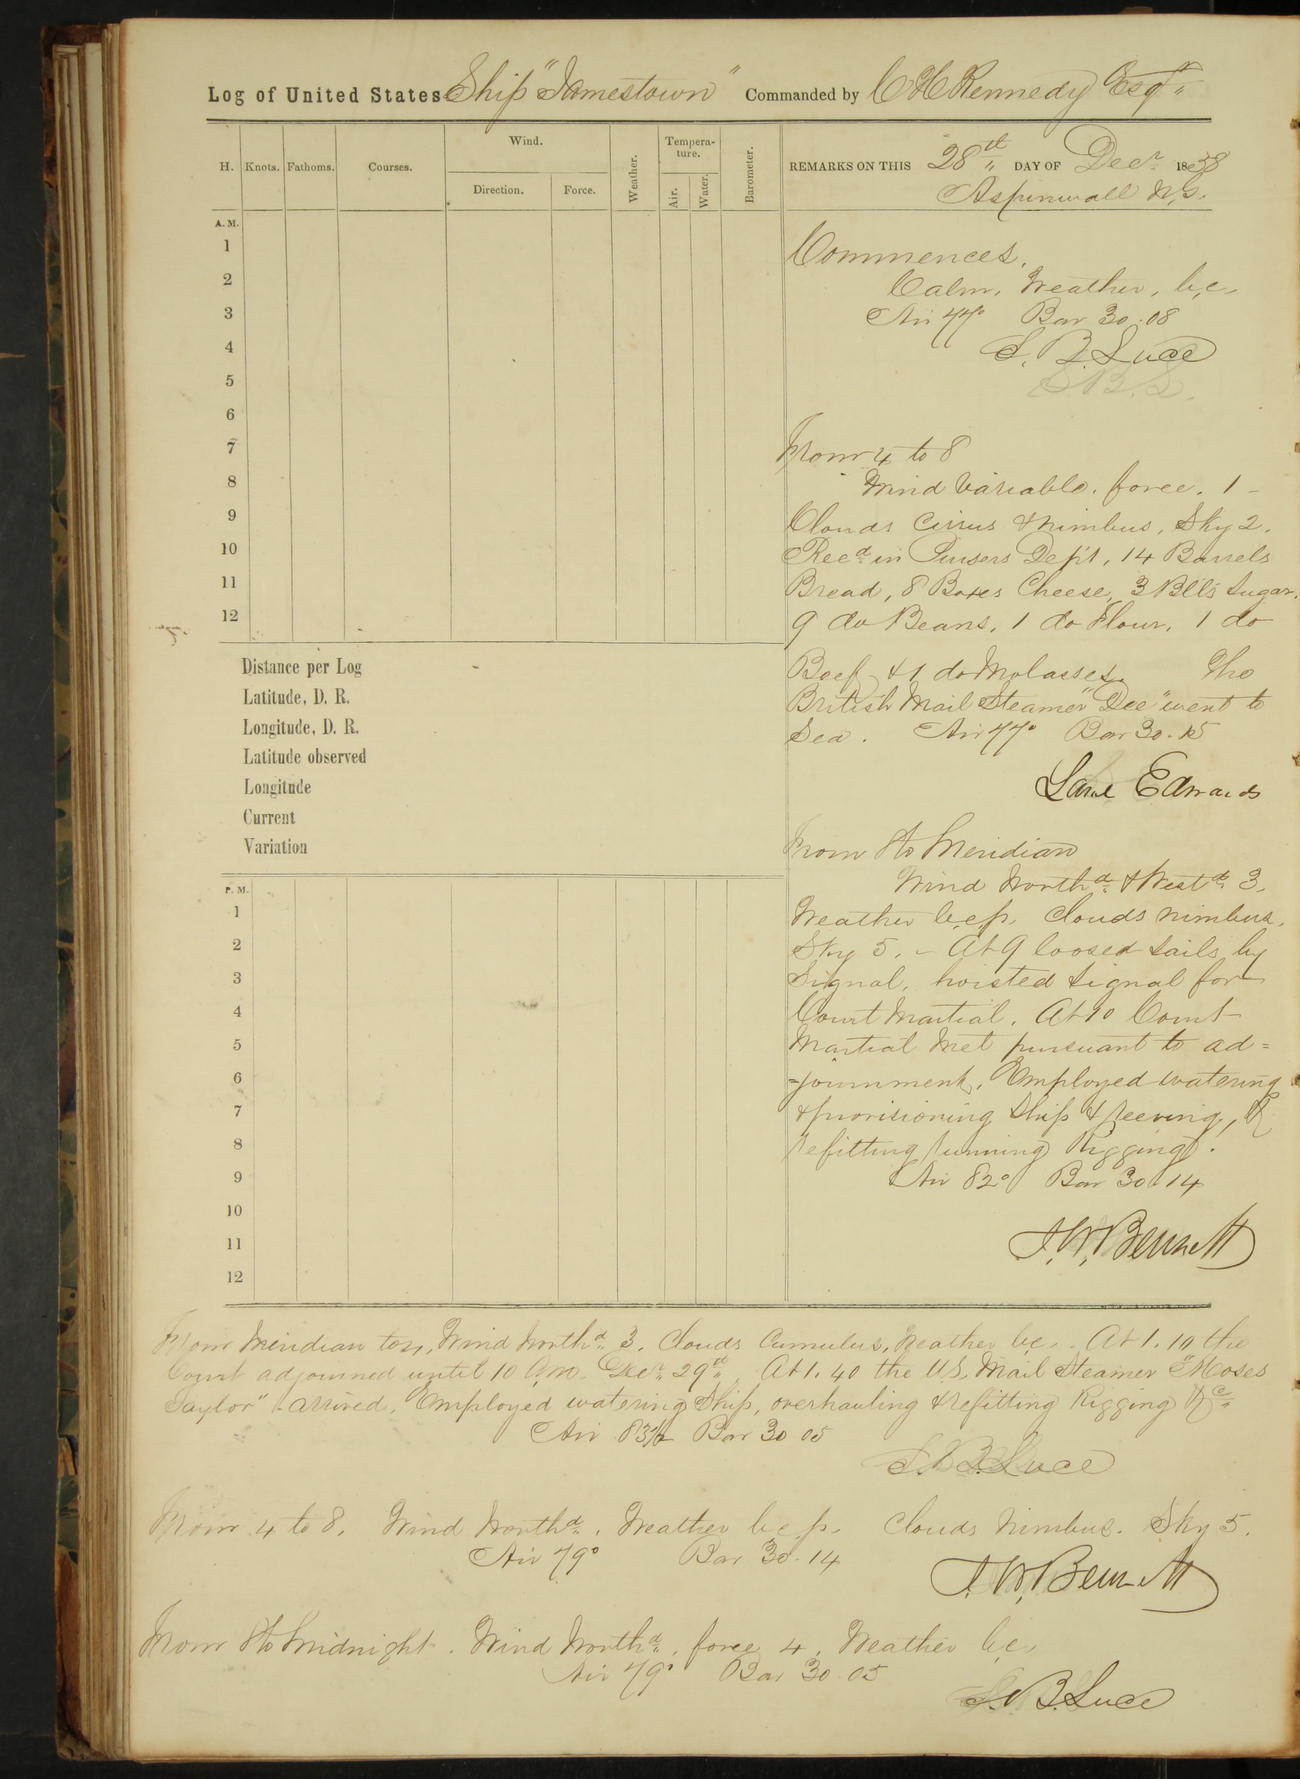 Log of United States Ship "Jamestown" Commanded by C H Kennedy Esqr
H. Knots. Fathoms. Courses. Wind. Direction. Force. Weather. Tempera-ture. Air. Water. Barometer.
REMARKS ON THIS 28th DAY OF Decr 1858
Aspinwall N.G.
A. M.
1
2
3
4
5
6
7
8
9
10
11
12
Commences.
Calm, Weather, b,c,
Air 77° Bar 30.08
S. B. Luce
S. B. L.
From 4 to 8
Wind Variable. force. 1 -
Clouds Cirrus & Nimbus, Sky 2.
Recd in Pursers Dep't, 14 Barrels
Bread, 8 Boxes Cheese, 3 Blls Sugar,
9 do Beans, 1 do Flour, 1 do
Beef & 1 do Molasses. The
British Mail Steamer "Dee" went to
Sea. Air 77° Bar 30.15
Edwards
Distance per Log
Latitude, D. R.
Longitude, D. R.
Latitude observed
Longitude
Current
Variation
From 8 to Meridian
Wind Northd & Westd 3.
Weather b,c,p, Clouds nimbus,
Sky 5. - At 9 loosed sails by
Signal, hoisted signal for
Court Martial. At 10 Court
Martial Met pursuant to ad=
=journment, Employed watering
& provisioning Ship & reeving, &
refitting running Rigging.
Air 82° Bar 30.14
J. W. Bennett
P. M.
1
2
3
4
5
6
7
8
9
10
11
12
From Meridian to 4, Wind Northd 3. Clouds Cumulus, Weather b,c. At 1.10 the
Court adjourned until 10 A.M. Decr 29th. At 1.40 the U.S. Mail Steamer "Moses
Taylor" arrived. Employed watering Ship, overhauling & refitting Rigging &c
Air 83½ Bar 30 05
S. B. Luce
From 4 to 8. Wind Northd. Weather b,c,p. Clouds Nimbus. Sky 5.
Air 79° Bar 30.14
J. W. Bennett
From 8 to Midnight. Wind Northd, force 4, Weather b,c,
Air 79° Bar 30.05
S. B. Luce